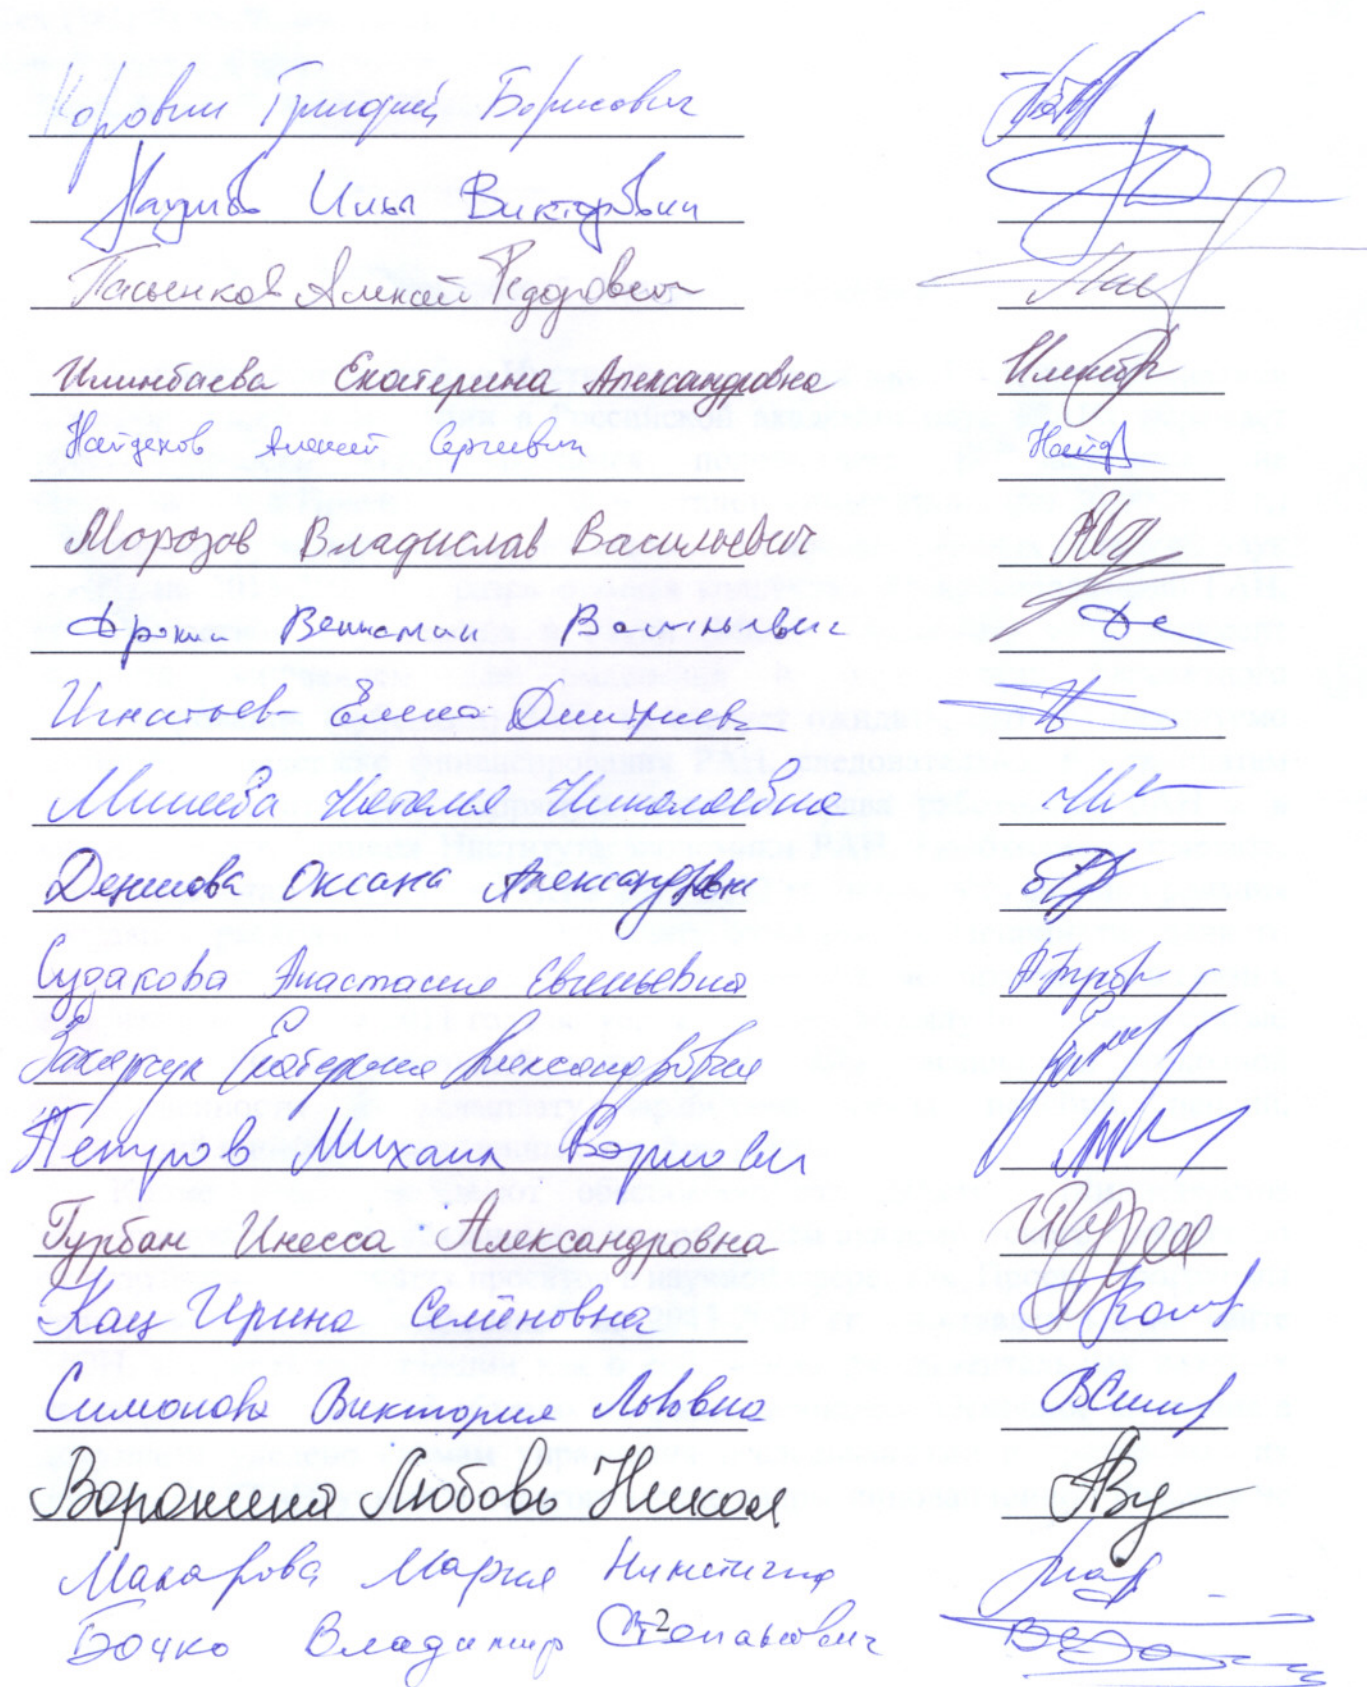 Коровин Григорий Борисович
Наумов Илья Викторович
Пасынков Алексей Федорович
Илинбаева Екатерина Александровна
Найденов Алексей Сергеевич
Морозов Владислав Васильевич
Вениамин Васильевич
Игнатьева Елена Дмитриевна
Наталья Николаевна
Денисова Оксана Александровна
Судакова Анастасия Евгеньевна
Захарчук Екатерина Александровна
Петров Михаил Борисович
Гурбан Инесса Александровна
Кац Ирина Семёновна
Симонова Виктория Львовна
Воронина Любовь Никол
Макарова Мария Никитична
Бочко Владимир Степанович
2